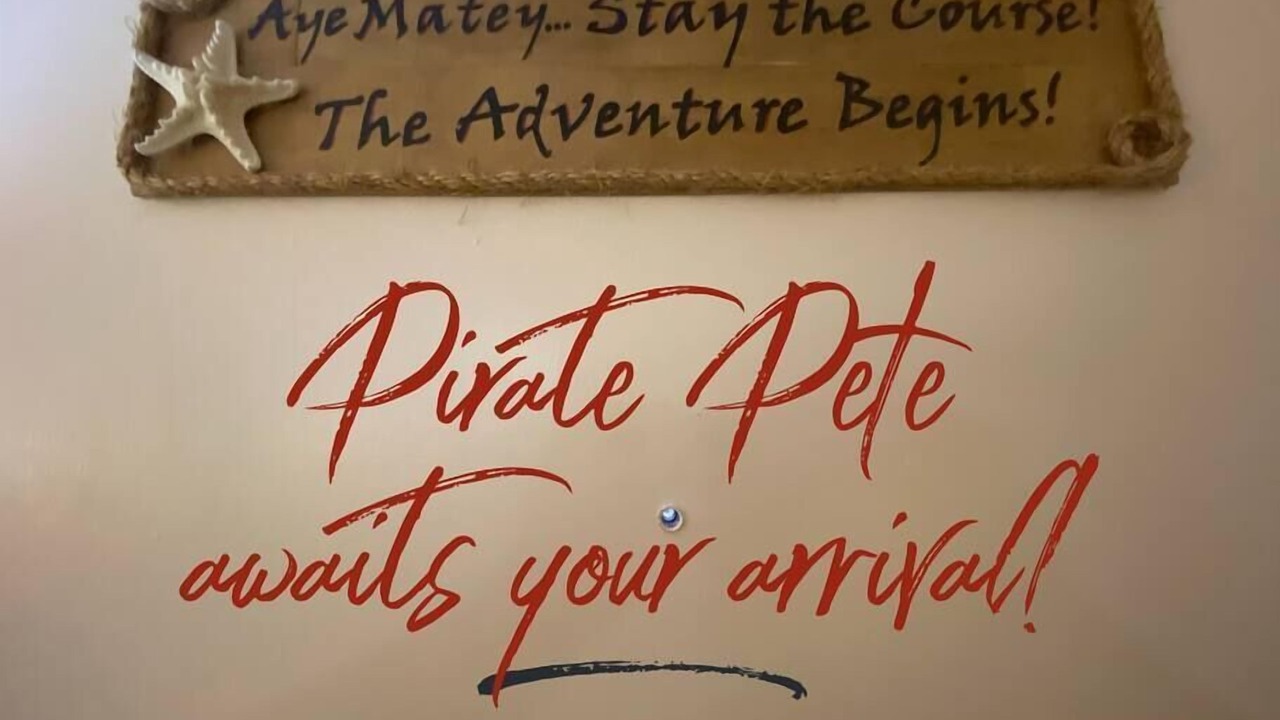 Aye Matey... Stay the Course!
The Adventure Begins!
Pirate Pete
awaits your arrival!